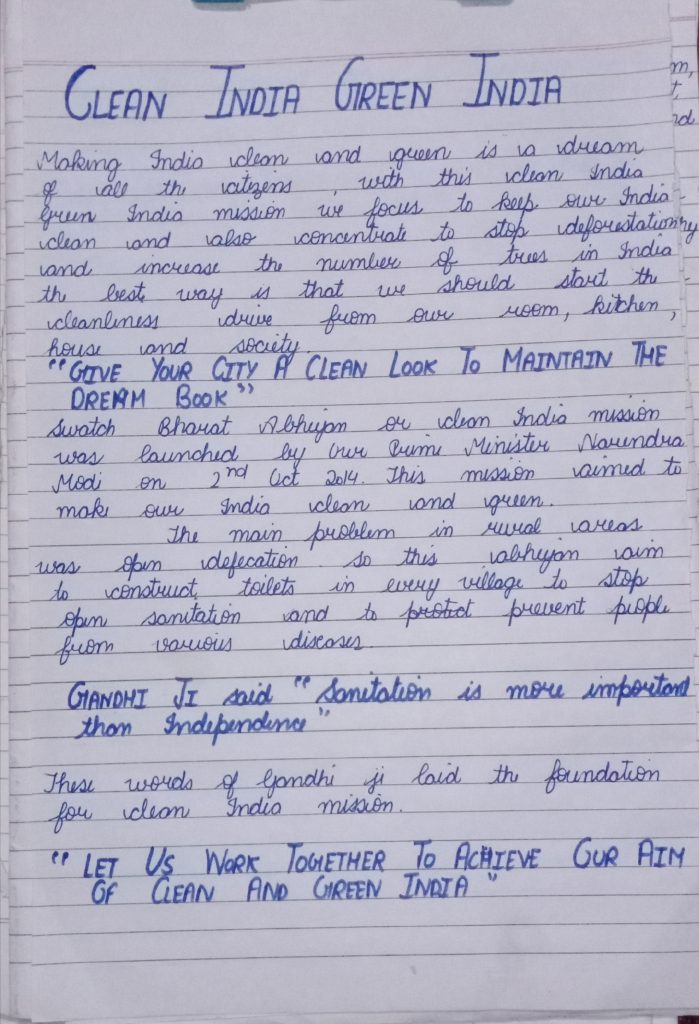 CLEAN INDIA GREEN INDIA
Making India clean and green is a dream
of all the citizens, with this clean India
green India mission we focus to keep our India
clean and also concentrate to stop deforestation
and increase the number of trees in India
the best way is that we should start the
cleanliness drive from our room, kitchen,
house and society.
"GIVE YOUR CITY A CLEAN LOOK TO MAINTAIN THE
DREAM BOOK"
Swatch Bharat Abhiyan or clean India mission
was launched by Our Prime Minister Narendra
Modi on 2nd Oct 2014. This mission aimed to
make our India clean and green.
The main problem in rural areas
was open defecation so this abhiyan aim
to construct toilets in every village to stop
open sanitation and to protect prevent people
from various diseases.
GANDHI JI said "Sanitation is more important
than Independence"
These words of Gandhi ji laid the foundation
for clean India mission.
"LET US WORK TOGETHER TO ACHIEVE OUR AIM
OF CLEAN AND GREEN INDIA"